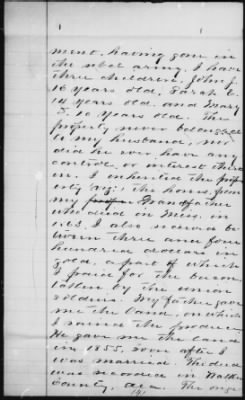 ment, having gone in
the rebel army. I have
three children, John J.
16 years old, Sarah E.
14 years old and Mary
F. 10 years old. The
property never belonged
to my husband, nor
did he ever have any
control or interest there
in. I inherited the prop
erty viz: the horse, from
my Grandfather
who died in Miss. in
1863. I also
three and four
hundred dollars in
gold, a part of which
I for the
taken by the union
soldiers. My father gave
me the land, on which
I raised the produce.
He gave me the land
in 1855, soon after I
was married. The deed
was recorded in
County, Ala. The